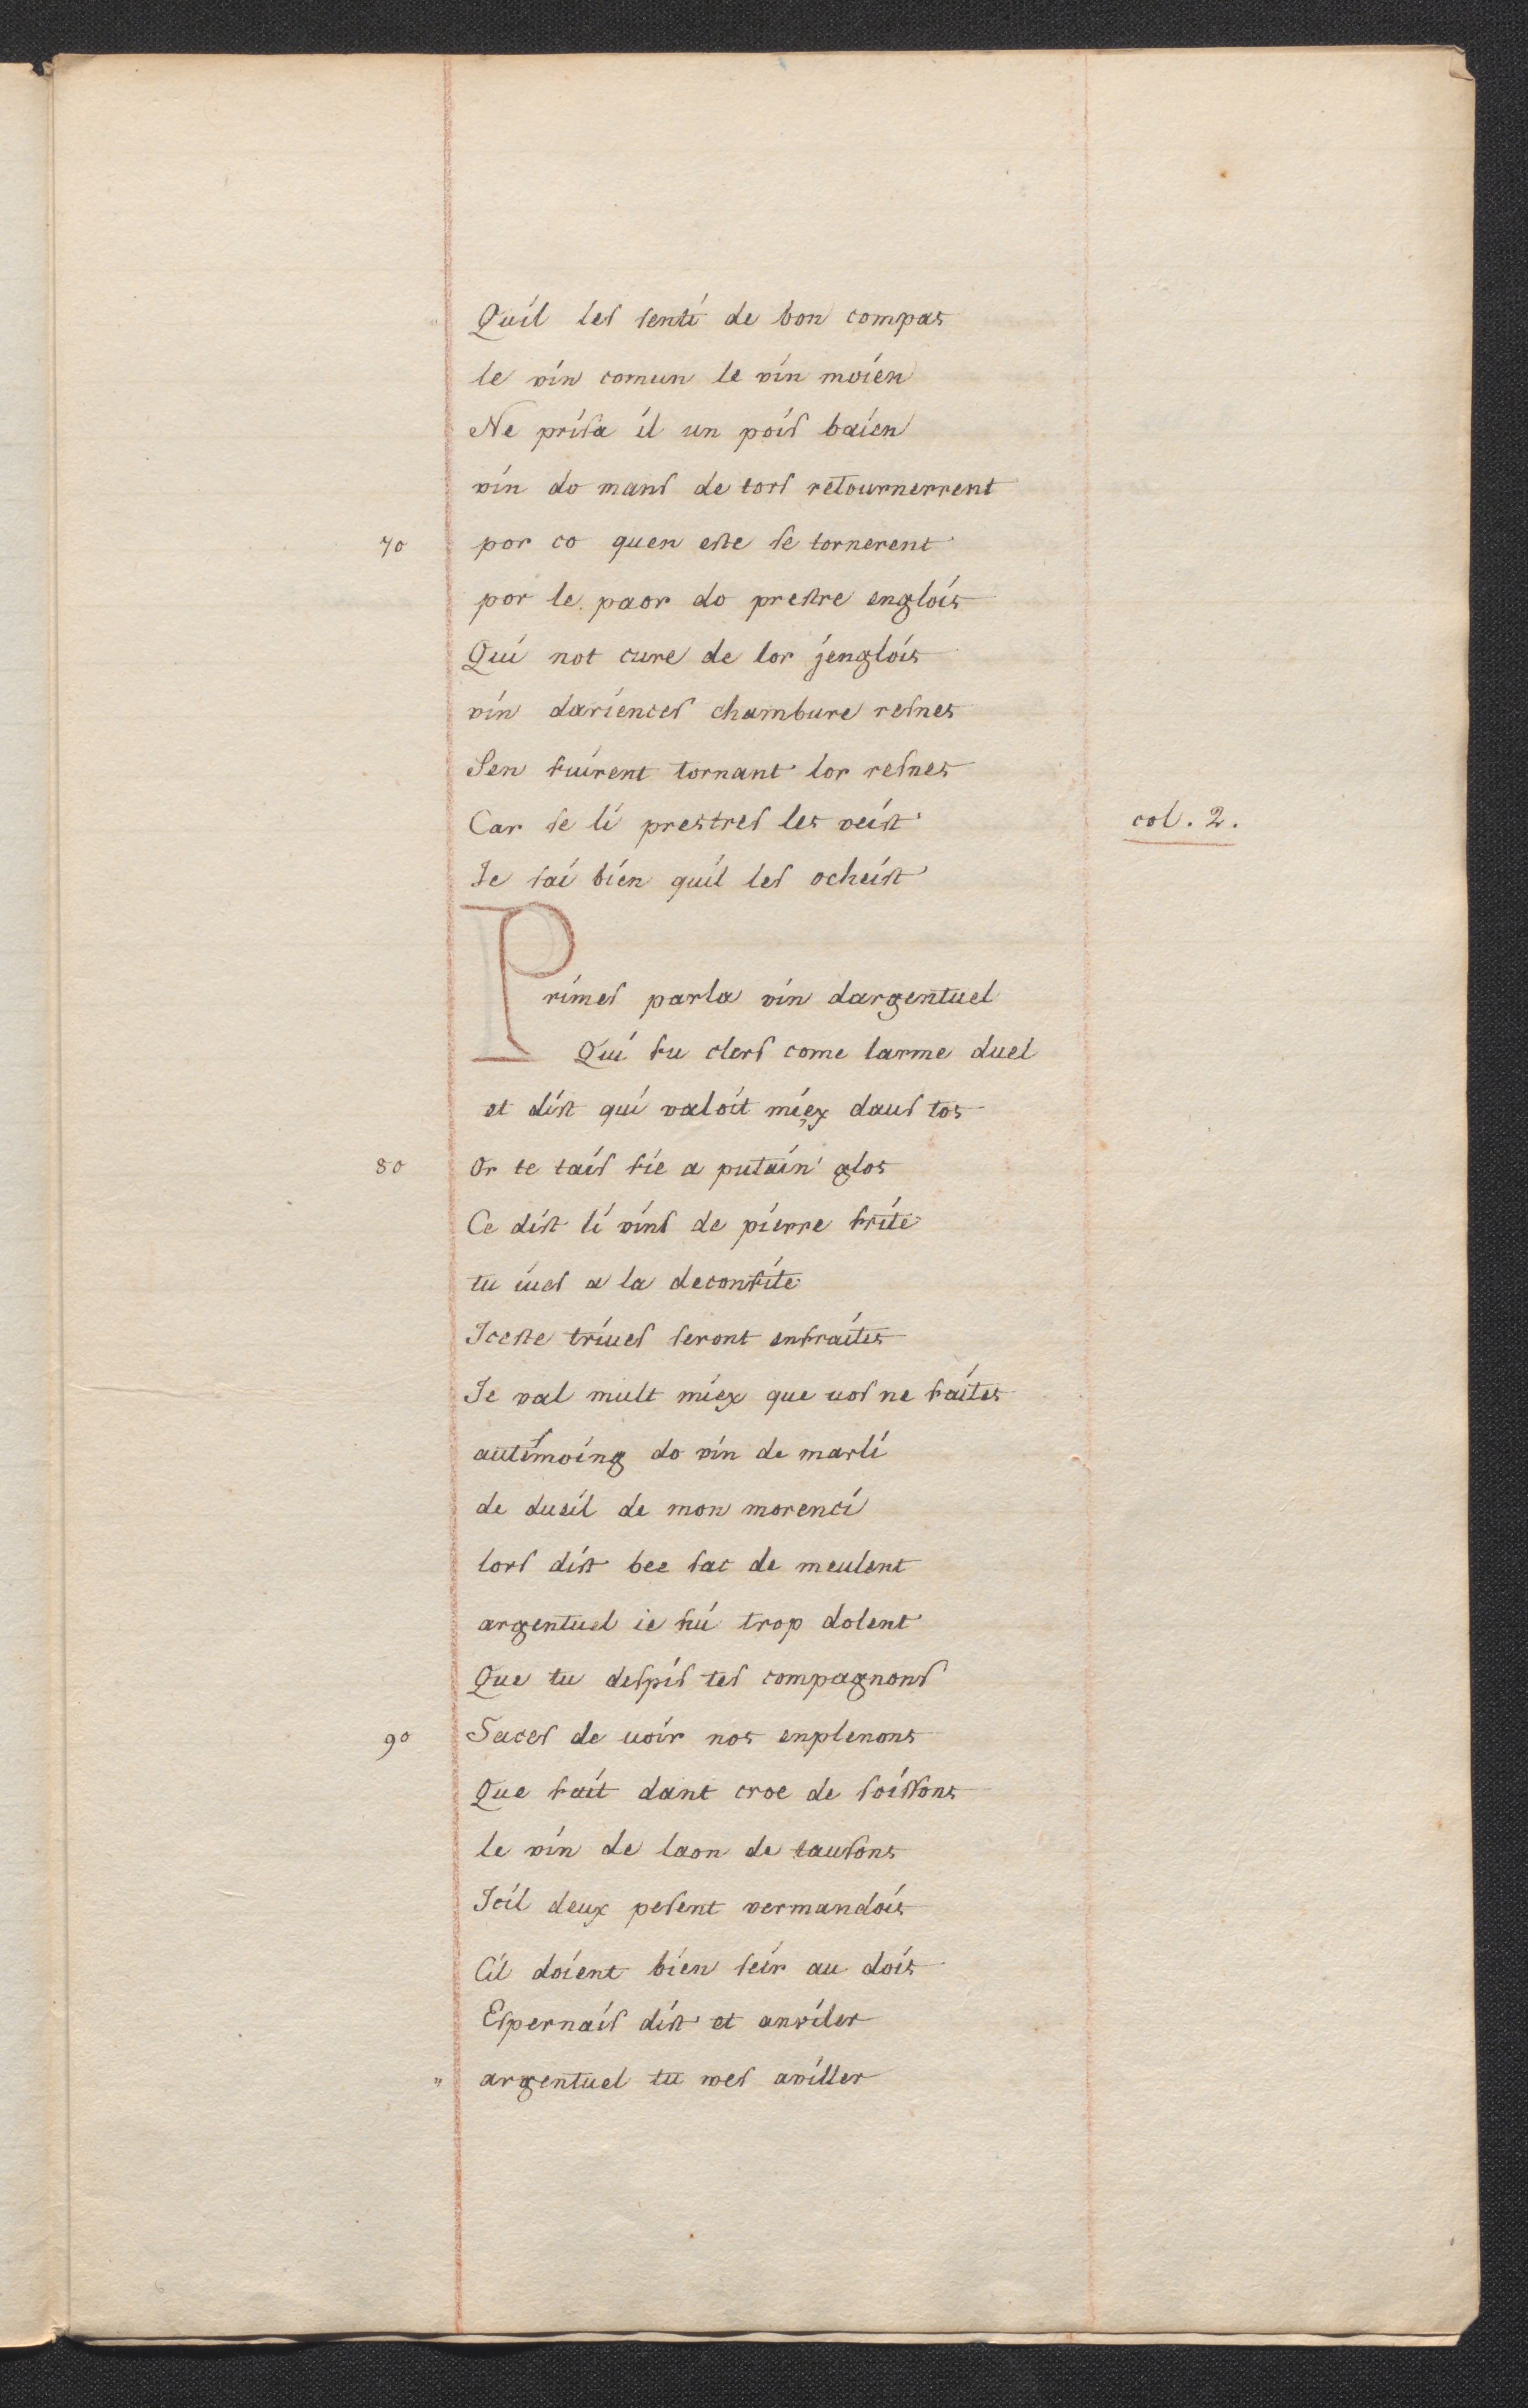 Quil les senti de bon compas
le vin comun le vin moien
Ne prisa il un pois baien
vin do mans de tors retournerrent
70 por co quen este se tornerent
por le paor do prestre englois
Qui not cure de lor jenglois
vin dariences chambure resnes
Sen fuirent tornant lor resnes
Car se li prestres les veist col. 2.
Je sai bien quil les ocheist
Primes parla vin dargentuel
Qui fu clers come larme duel
et dist qui valoit miex daus tos
80 Or te tais fie a putain glos
Ce dist li vins de pierre frite
tu iues a la deconfite
Iceste triues seront enfraites
Je val mult miex que uos ne faites
autimoing do vin de marli
de dusil de mon morenci
lors dist bee sac de meulent
argentuel ie fui trop dolent
Que tu despis tes compagnons
90 Saces de uoir nos enplenons
Que fait dant croe de soissons
le vin de laon de tausons
Icil deux pesent vermandois
Cil doient bien seir au dois
Espernais dist et anviler
" argentuel tu wes aviller